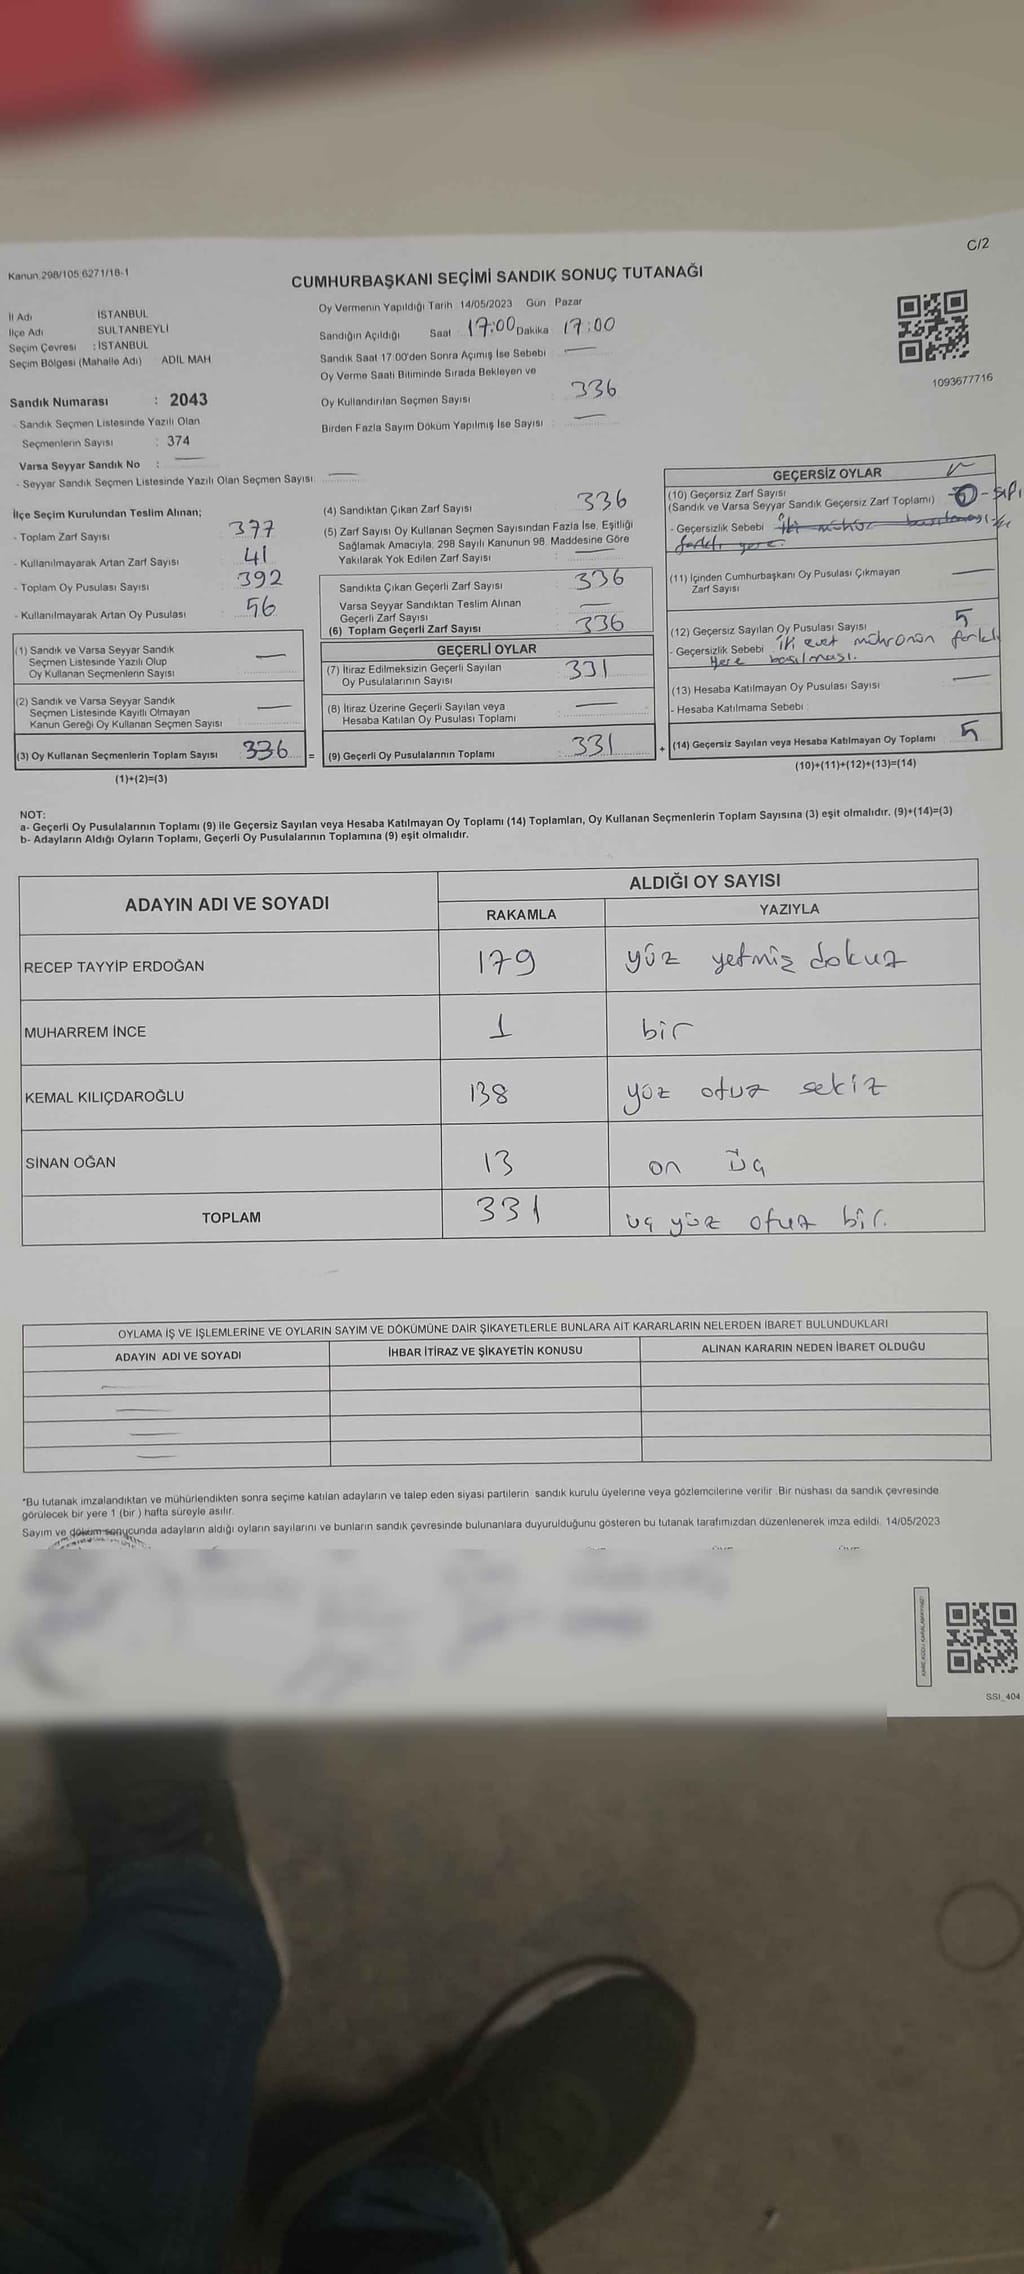 C/2
Kanun 298/105 6271/18-1
CUMHURBAŞKANI SEÇİMİ SANDIK SONUÇ TUTANAĞI
İl Adı İSTANBUL
İlçe Adı SULTANBEYLİ
Seçim Çevresi : İSTANBUL
Seçim Bölgesi (Mahalle Adı) ADİL MAH
Oy Vermenin Yapıldığı Tarih 14/05/2023 Gün Pazar
Sandığın Açıldığı Saat 17:00 Dakika 17:00
Sandık Saat 17.00'den Sonra Açımış İse Sebebi
Oy Verme Saati Bitiminde Sırada Bekleyen ve
Oy Kullandırılan Seçmen Sayısı 336
Birden Fazla Sayım Döküm Yapılmış İse Sayısı
1093677716
Sandık Numarası : 2043
- Sandık Seçmen Listesinde Yazılı Olan
Seçmenlerin Sayısı : 374
Varsa Seyyar Sandık No :
- Seyyar Sandık Seçmen Listesinde Yazılı Olan Seçmen Sayısı
İlçe Seçim Kurulundan Teslim Alınan;
- Toplam Zarf Sayısı 377
- Kullanılmayarak Artan Zarf Sayısı 41
- Toplam Oy Pusulası Sayısı 392
- Kullanılmayarak Artan Oy Pusulası 56
(1) Sandık ve Varsa Seyyar Sandık
Seçmen Listesinde Yazılı Olup
Oy Kullanan Seçmenlerin Sayısı
(2) Sandık ve Varsa Seyyar Sandık
Seçmen Listesinde Kayıtlı Olmayan
Kanun Gereği Oy Kullanan Seçmen Sayısı
(3) Oy Kullanan Seçmenlerin Toplam Sayısı 336 =
(1)+(2)=(3)
(4) Sandıktan Çıkan Zarf Sayısı 336
(5) Zarf Sayısı Oy Kullanan Seçmen Sayısından Fazla İse, Eşitliği
Sağlamak Amacıyla, 298 Sayılı Kanunun 98. Maddesine Göre
Yakılarak Yok Edilen Zarf Sayısı
Sandıkta Çıkan Geçerli Zarf Sayısı 336
Varsa Seyyar Sandıktan Teslim Alınan
Geçerli Zarf Sayısı
(6) Toplam Geçerli Zarf Sayısı 336
GEÇERLİ OYLAR
(7) İtiraz Edilmeksizin Geçerli Sayılan
Oy Pusulalarının Sayısı 331
(8) İtiraz Üzerine Geçerli Sayılan veya
Hesaba Katılan Oy Pusulası Toplamı
(9) Geçerli Oy Pusulalarının Toplamı 331 +
GEÇERSİZ OYLAR
(10) Geçersiz Zarf Sayısı
(Sandık ve Varsa Seyyar Sandık Geçersiz Zarf Toplamı)
- Geçersizlik Sebebi iki mühür basılması
farklı yere.
(11) İçinden Cumhurbaşkanı Oy Pusulası Çıkmayan
Zarf Sayısı
(12) Geçersiz Sayılan Oy Pusulası Sayısı 5
- Geçersizlik Sebebi iki evet mührünün farklı
yere basılması.
(13) Hesaba Katılmayan Oy Pusulası Sayısı
- Hesaba Katılmama Sebebi
(14) Geçersiz Sayılan veya Hesaba Katılmayan Oy Toplamı 5
(10)+(11)+(12)+(13)=(14)
NOT:
a- Geçerli Oy Pusulalarının Toplamı (9) ile Geçersiz Sayılan veya Hesaba Katılmayan Oy Toplamı (14) Toplamları, Oy Kullanan Seçmenlerin Toplam Sayısına (3) eşit olmalıdır. (9)+(14)=(3)
b- Adayların Aldığı Oyların Toplamı, Geçerli Oy Pusulalarının Toplamına (9) eşit olmalıdır.
ADAYIN ADI VE SOYADI
ALDIĞI OY SAYISI
RAKAMLA YAZIYLA
RECEP TAYYİP ERDOĞAN 179 yüz yetmiş dokuz
MUHARREM İNCE 1 bir
KEMAL KILIÇDAROĞLU 138 yüz otuz sekiz
SİNAN OĞAN 13 on üç
TOPLAM 331 üç yüz otuz bir.
OYLAMA İŞ VE İŞLEMLERİNE VE OYLARIN SAYIM VE DÖKÜMÜNE DAİR ŞİKAYETLERLE BUNLARA AİT KARARLARIN NELERDEN İBARET BULUNDUKLARI
ADAYIN ADI VE SOYADI İHBAR İTİRAZ VE ŞİKAYETİN KONUSU ALINAN KARARIN NEDEN İBARET OLDUĞU
*Bu tutanak imzalandıktan ve mühürlendikten sonra seçime katılan adayların ve talep eden siyasi partilerin sandık kurulu üyelerine veya gözlemcilerine verilir. Bir nüshası da sandık çevresinde
görülecek bir yere 1 (bir) hafta süreyle asılır.
Sayım ve döküm sonucunda adayların aldığı oyların sayılarını ve bunların sandık çevresinde bulunanlara duyurulduğunu gösteren bu tutanak tarafımızdan düzenlenerek imza edildi. 14/05/2023
SSI_404